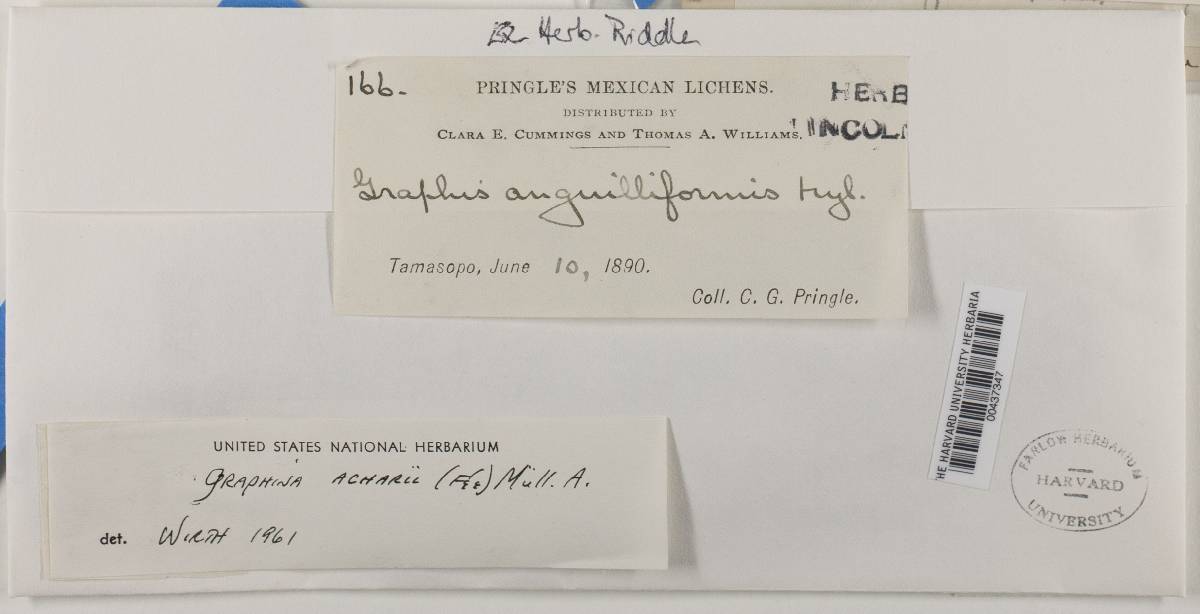 Ex Herb. Riddle
166.
PRINGLE'S MEXICAN LICHENS.
DISTRIBUTED BY
CLARA E. CUMMINGS AND THOMAS A. WILLIAMS.
HERB
LINCOL
Graphis anguilliformis Nyl.
Tamasopo, June 10, 1890.
Coll. C. G. Pringle.
HE HARVARD UNIVERSITY HERBARIA
00437347
UNITED STATES NATIONAL HERBARIUM
GRAPHINA ACHARII (Fée) Müll. A.
det. WIRTH 1961
FARLOW HERBARIUM
HARVARD
UNIVERSITY